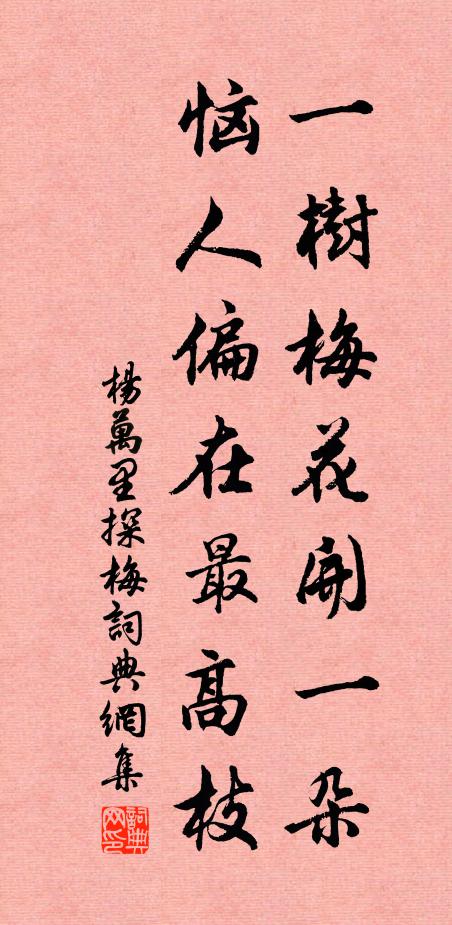 一樹梅花開一朵
惱人偏在最高枝
楊萬里探梅詞典網集
詞典网印